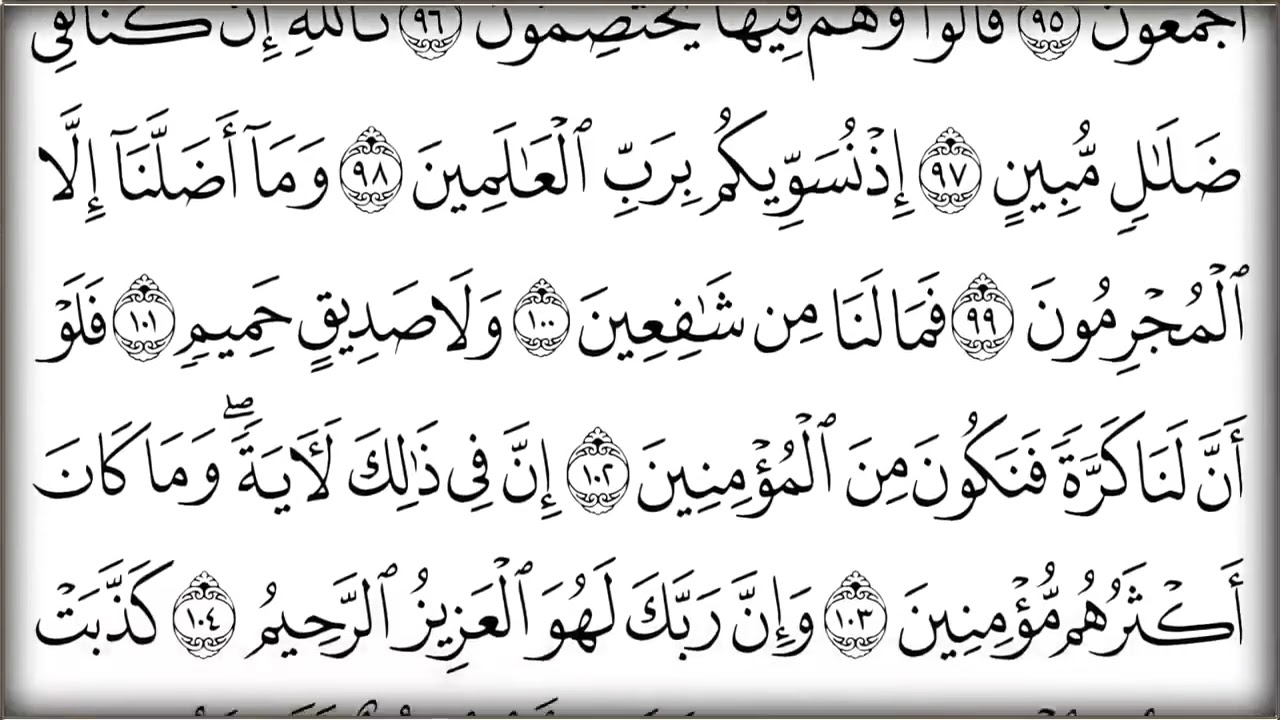 أَجْمَعُونَ ٩٥ قَالُوا وَهُمْ فِيهَا يَخْتَصِمُونَ ٩٦ تَاللَّهِ إِن كُنَّا لَفِي
ضَلَٰلٍ مُّبِينٍ ٩٧ إِذْ نُسَوِّيكُم بِرَبِّ ٱلْعَٰلَمِينَ ٩٨ وَمَآ أَضَلَّنَآ إِلَّا
ٱلْمُجْرِمُونَ ٩٩ فَمَا لَنَا مِن شَٰفِعِينَ ١٠٠ وَلَا صَدِيقٍ حَمِيمٍ ١٠١ فَلَوْ
أَنَّ لَنَا كَرَّةً فَنَكُونَ مِنَ ٱلْمُؤْمِنِينَ ١٠٢ إِنَّ فِي ذَٰلِكَ لَأَيَةً ۖ وَمَا كَانَ
أَكْثَرُهُم مُّؤْمِنِينَ ١٠٣ وَإِنَّ رَبَّكَ لَهُوَ ٱلْعَزِيزُ ٱلرَّحِيمُ ١٠٤ كَذَّبَتْ